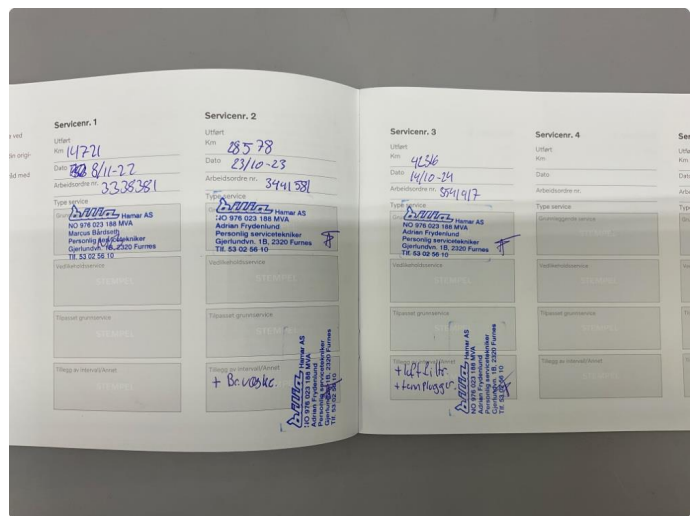 Servicenr. 1
Utført
Km 14721
Dato 8/11-22
Arbeidsordre nr. 3338381
Type service
Hamar AS
NO 976 023 188 MVA
Marcus Bårdseth
Personlig servicetekniker
Gjerlundvn. 1B, 2320 Furnes
Tlf. 53 02 56 10
Vedlikeholdsservice
STEMPEL
Tilpasset grunnservice
Tillegg av intervall/Annet
Servicenr. 2
Utført
Km 28578
Dato 23/10-23
Arbeidsordre nr. 3441581
Type service
Hamar AS
NO 976 023 188 MVA
Adrian Frydenlund
Personlig servicetekniker
Gjerlundvn. 1B, 2320 Furnes
Tlf. 53 02 56 10
Vedlikeholdsservice
STEMPEL
Tilpasset grunnservice
STEMPEL
Tillegg av intervall/Annet
+ Br.væske.
Hamar AS
NO 976 023 188 MVA
Adrian Frydenlund
Personlig servicetekniker
Gjerlundvn. 1B, 2320 Furnes
Tlf. 53 02 56 10
Servicenr. 3
Utført
Km
Dato 14/10-24
Arbeidsordre nr.
Type service
Hamar AS
NO 976 023 188 MVA
Adrian Frydenlund
Personlig servicetekniker
Gjerlundvn. 1B, 2320 Furnes
Tlf. 53 02 56 10
Vedlikeholdsservice
Tilpasset grunnservice
Tillegg av intervall/Annet
+ luftfilter.
+ tennplugger
Hamar AS
NO 976 023 188 MVA
Adrian Frydenlund
Personlig servicetekniker
Gjerlundvn. 1B, 2320 Furnes
Tlf. 53 02 56 10
Servicenr. 4
Utført
Km
Dato
Arbeidsordre nr.
Type service
Grunnleggende service
Vedlikeholdsservice
Tilpasset grunnservice
Tillegg av intervall/Annet